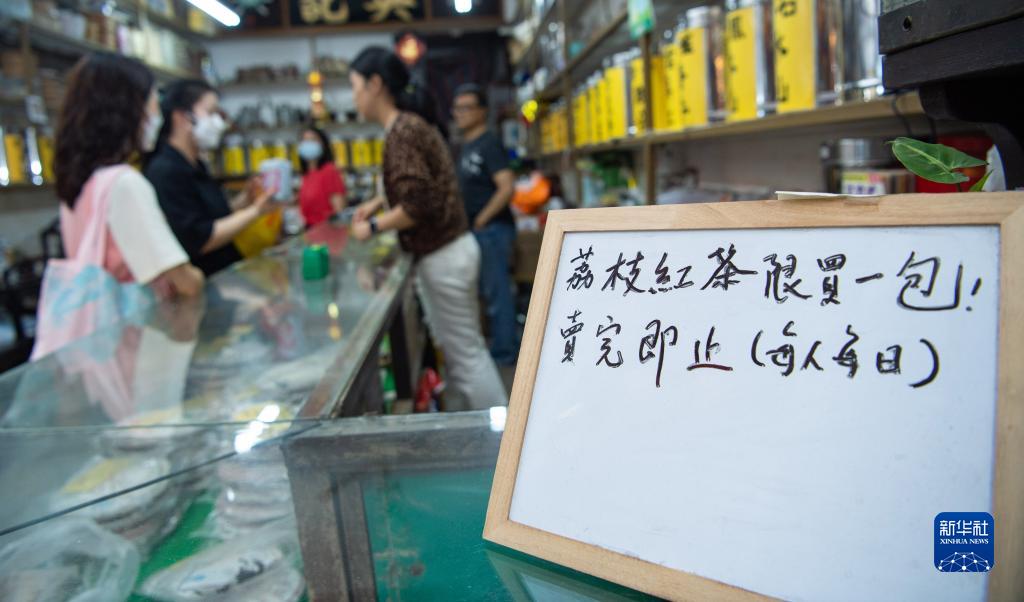 英記
荔枝紅茶限買一包!!
賣完即止(每人每日)
新华社
XINHUA NEWS